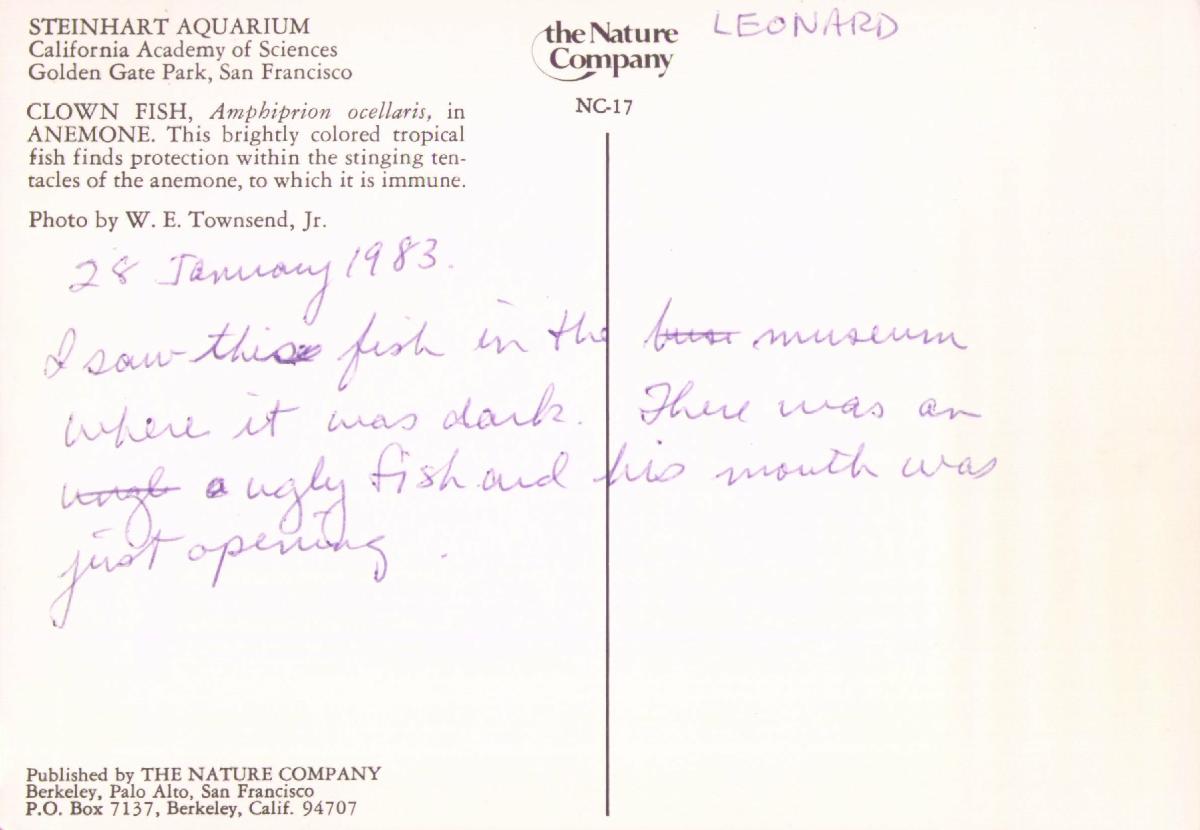 STEINHART AQUARIUM
California Academy of Sciences
Golden Gate Park, San Francisco
CLOWN FISH, Amphiprion ocellaris, in
ANEMONE. This brightly colored tropical
fish finds protection within the stinging ten-
tacles of the anemone, to which it is immune.
Photo by W. E. Townsend, Jr.
the Nature
Company
NC-17
LEONARD
28 January 1983.
I saw this fish in the museum
where it was dark. There was an
a ugly fish and his mouth was
just opening.
Published by THE NATURE COMPANY
Berkeley, Palo Alto, San Francisco
P.O. Box 7137, Berkeley, Calif. 94707